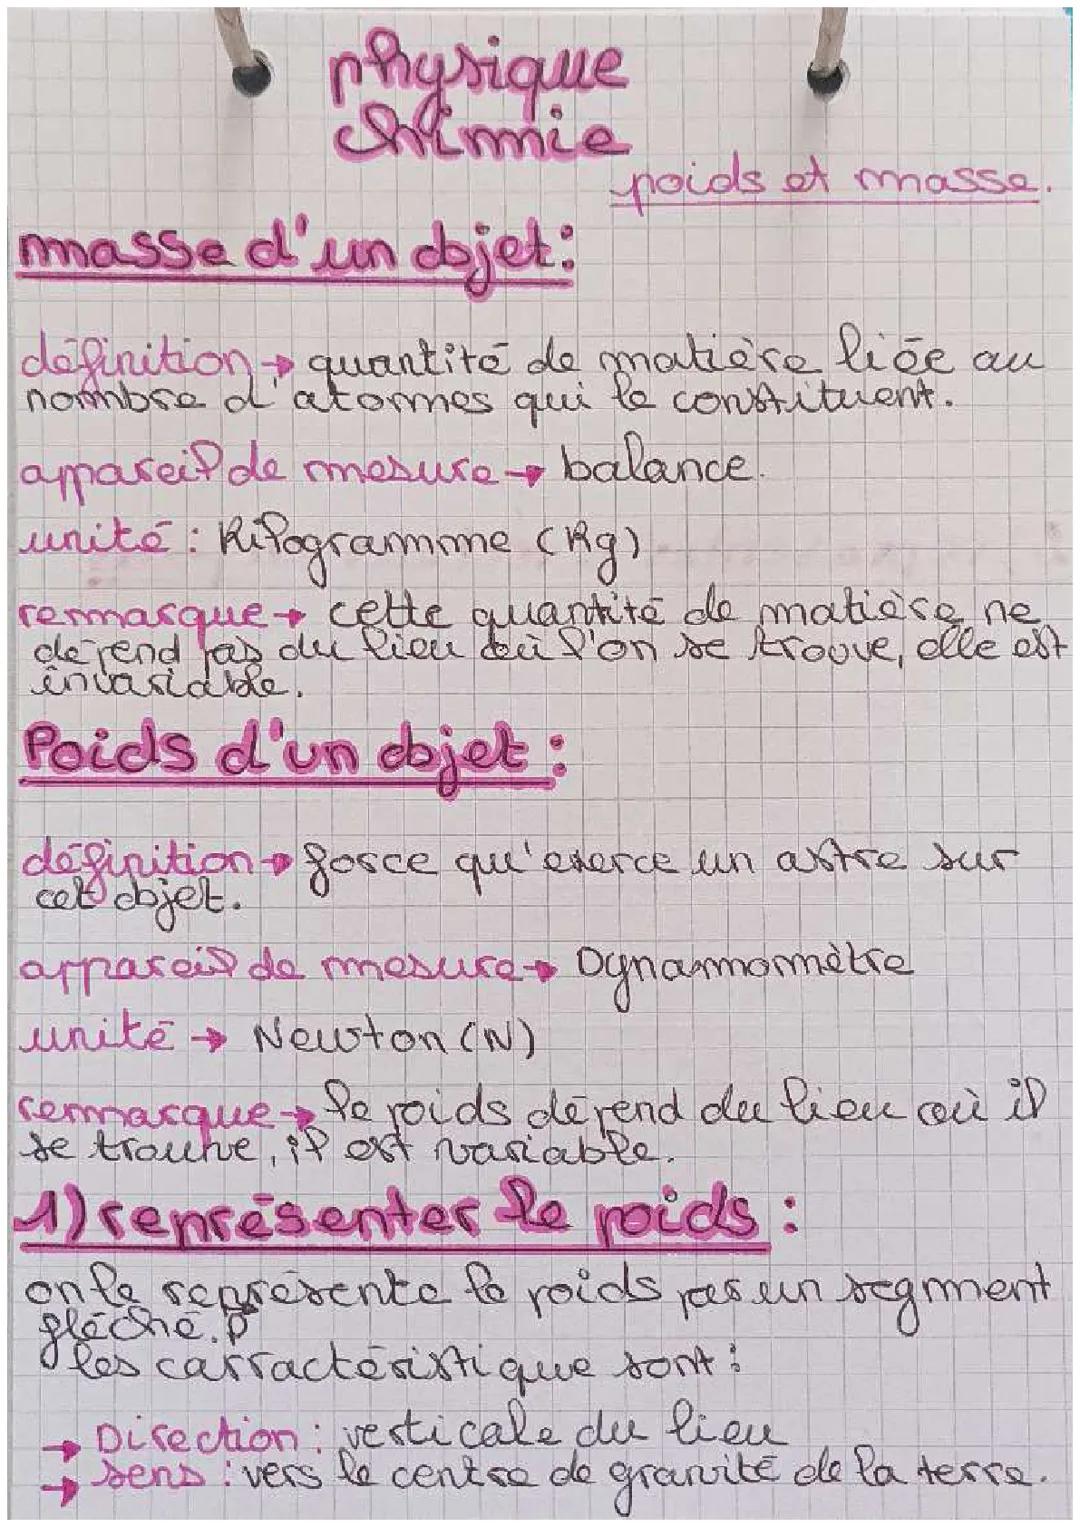 physique
chimie
poids et masse.
masse d'un objet :
définition → quantité de matière liée au
nombre d'atomes qui le constituent.
appareil de mesure → balance.
unité : Kilogramme (Kg)
remarque → cette quantité de matière ne
dépend pas du lieu où l'on se trouve, elle est
invariable.
Poids d'un objet :
définition → force qu'exerce un astre sur
cet objet.
appareil de mesure → Dynamomètre
unité → Newton (N)
remarque → le poids dépend du lieu où il
se trouve, il est variable.
1) représenter le poids :
on le représente le poids par un segment
fléché. P
les carractéristique sont :
→ Direction : verticale du lieu
→ sens : vers le centre de gravité de la terre.